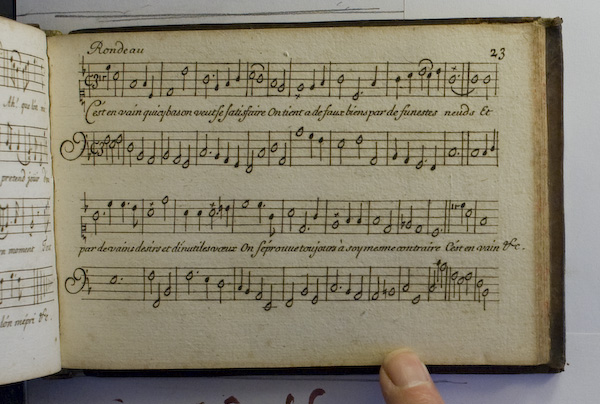 Rondeau
23
C'est en vain qu'icy bas on veut se satisfaire On tient a de faux biens par de funestes neuds Et
par de vains desirs et d'inutiles vœux On s'éprouue toujours à soy mesme contraire C'est en vain &c.
Ah! que bon
pretend jouir